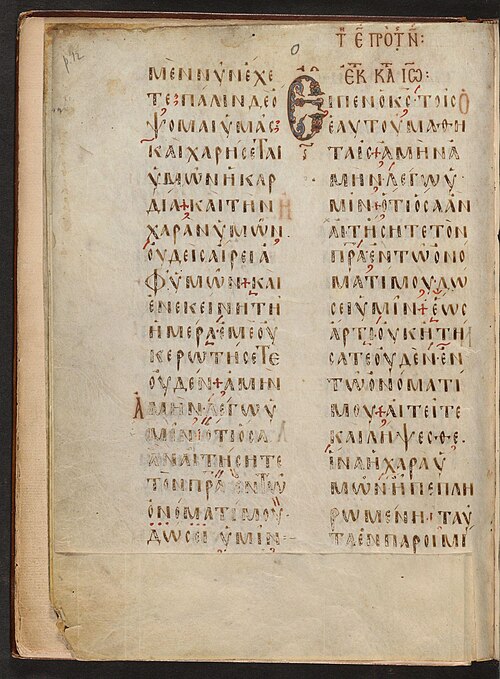 p. 42
ΜΕΝΝΥΝΕΧΕ
ΤΕ·ΠΑΛΙΝΔΕΟ
ΨΟΜΑΙΥΜΑΣ
ΚΑΙΧΑΡΗΣΕΤΑΙ
ΥΜΩΝΗΚΑΡ
ΔΙΑ+ΚΑΙΤΗΝ
ΧΑΡΑΝΥΜΩΝ
ΟΥΔΕΙΣΑΙΡΕΙΑ
ΦΥΜΩΝ+ΚΑΙ
ΕΝΕΚΕΙΝΗΤΗ
ΗΜΕΡΑ·ΕΜΕΟΥ
ΚΕΡΩΤΗΣΕΤΕ
ΟΥΔΕΝ+ΑΜΗΝ
ΑΜΗΝ·ΛΕΓΩΥ
ΜΙΝ·ΟΤΙΟΣΑ
ΑΝΑΙΤΗΣΗΤΕ
ΤΟΝΠΡΑ ΕΝΤΩ
ΟΝΟΜΑΤΙΜΟΥ·
ΔΩΣΕΙ ΥΜΙΝ·
ΕΚ ΚΑ ΙΩ:
ΕΙΠΕΝΟΚΣΤΟΙΣ
ΕΑΥΤΟΥΜΑΘΗ
ΤΑΙΣ+ΑΜΗΝΑ
ΜΗΝ·ΛΕΓΩΥ
ΜΙΝ·ΟΤΙΟΣΑΑΝ
ΑΙΤΗΣΗΤΕΤΟΝ
ΠΡΑΕΝΤΩΟΝΟ
ΜΑΤΙΜΟΥ·ΔΩ
ΣΕΙΥΜΙΝ+ΕΩΣ
ΑΡΤΙΟΥΚΗΤΗ
ΣΑΤΕΟΥΔΕΝ·ΕΝ
ΤΩΟΝΟΜΑΤΙ
ΜΟΥ+ΑΙΤΕΙΤΕ
ΚΑΙΛΗΨΕΣΘΕ·
ΙΝΑΗΧΑΡΑΥ
ΜΩΝΗΠΕΠΛΗ
ΡΩΜΕΝΗ·ΤΑΥ
ΤΑΕΝΠΑΡΟΙΜΙ